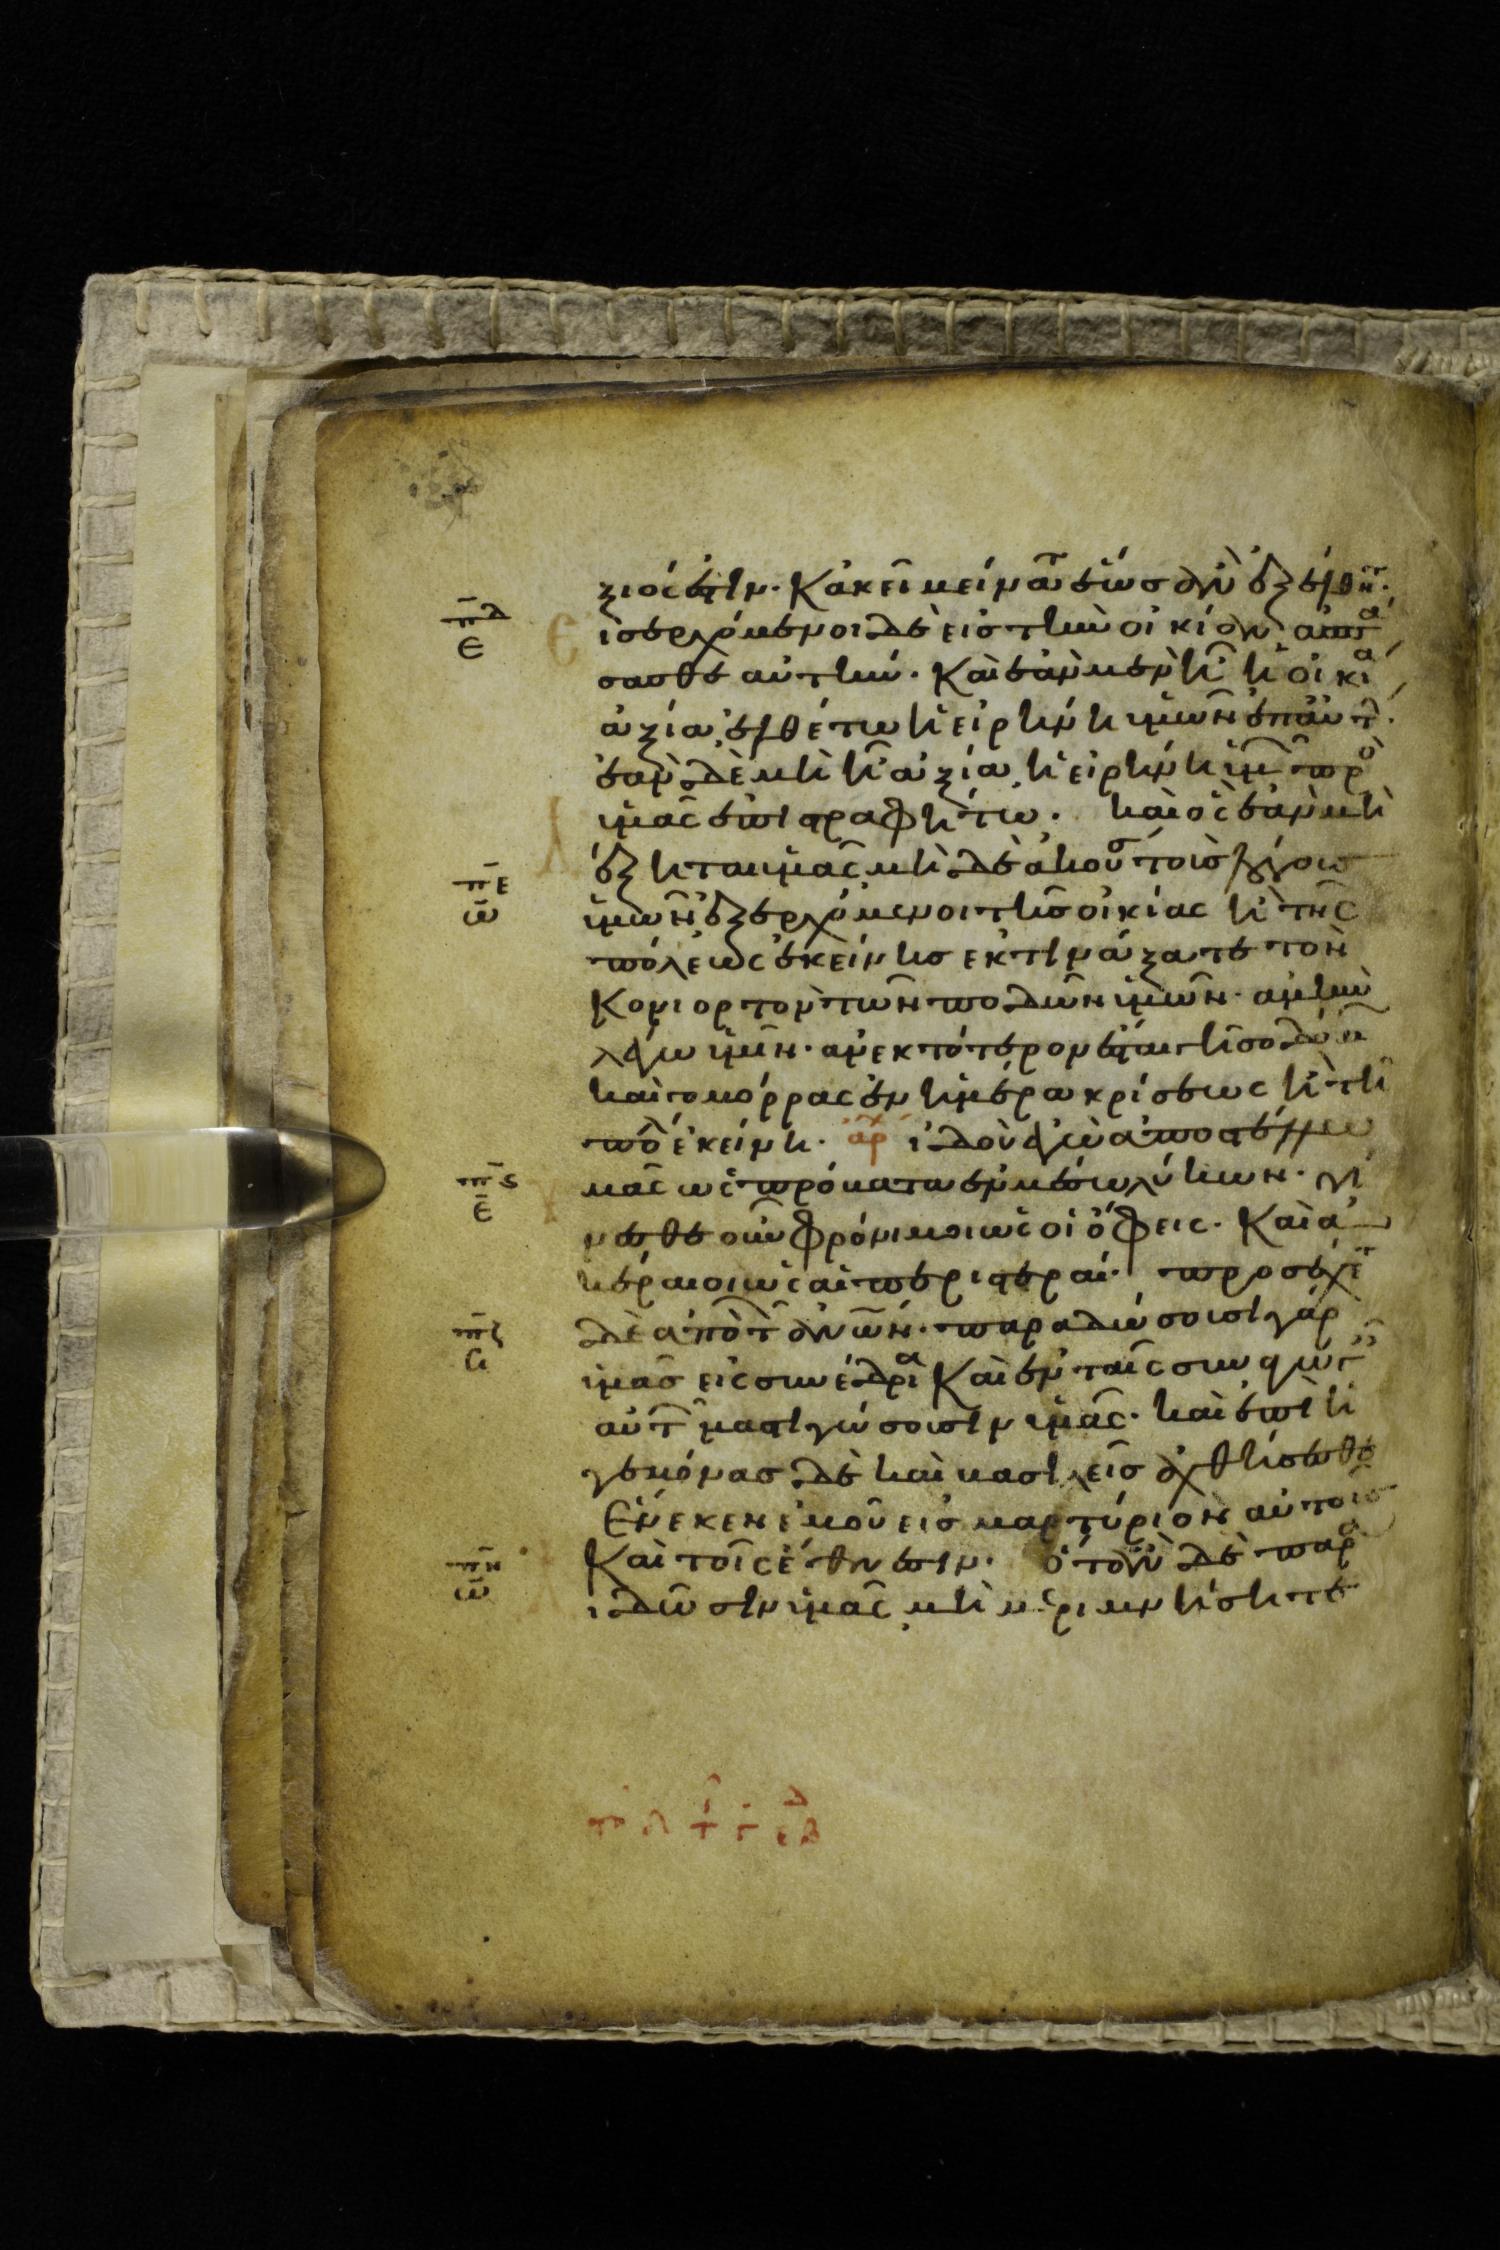 ξιός ἐστιν. Κἀκεῖ μείνατε ἕως ἂν ἐξέλθητ.
ἰσερχόμενοι δὲ εἰς τὴν οἰκίαν ἀσπά
πδ
ε
σασθε αὐτήν. Καὶ ἐὰν μὲν ἦ ἡ οἰκία
ἀξία, ἐλθέτω ἡ εἰρήνη ὑμῶν ἐπ αὐτ.
ἐὰν δὲ μὴ ἦ ἀξία, ἡ εἰρήνη ὑμῶν πρὸ
ὑμᾶς ἐπιστραφήτω. καὶ ὃς ἐὰν μὴ
δέξηται ὑμᾶς μὴ δὲ ἀκούσ τοὺς λόγους
πε
ω
ὑμῶν, ἐξερχόμενοι τῆς οἰκίας ἢ τῆς
πόλεως ἐκείνης ἐκτινάξατε τὸν
Κονιορτὸν τῶν ποδῶν ὑμῶν. ἀμὴν
λέγω ὑμῖν. ἀνεκτότερον ἔσται γῆ σοδόμ
καὶ γομόρρας ἐν ἡμέρα κρίσεως ἢ τῆ
πόλ ἐκείνη. ἀρχ ἰδοὺ ἐγὼ ἀποστέλλω
πς
ε
μᾶς ὡς πρόβατα ἐν μέσω λύκων. γί
νεσθε οὖν φρόνιμοι ὡς οἱ ὄφεις. Καὶ ἀ
κέραιοι ὡς αἱ περιστεραί. προσέχετ
πζ
α
δὲ ἀπὸ τ ἀνων. παραδώσουσι γὰρ
ὑμᾶς εἰς συνέδρια Καὶ ἐν ταῖς συναγωγ
αὐτ μαστιγώσουσιν ὑμᾶς. καὶ ἐπὶ ἡ
γεμόνας δὲ καὶ βασιλεῖς ἀχθήσεσθε
Ενεκεν ἐμοῦ εἰς μαρτύριον αὐτοῖς
Καὶ τοῖς ἔθνεσιν. ὅταν δὲ παρα
πη
ω
διδῶσιν ὑμᾶς μὴ μεριμνήσητε